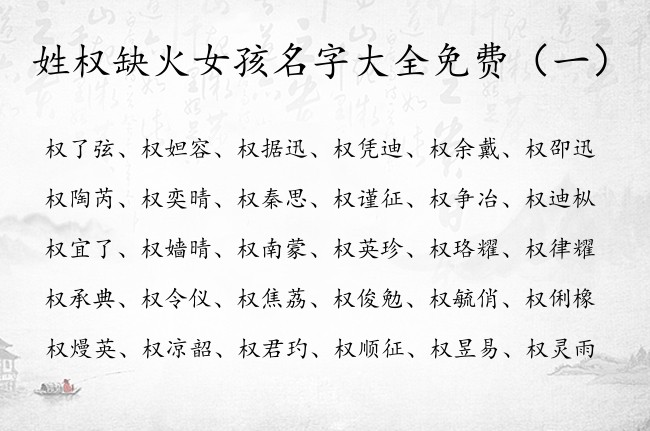 姓权缺火女孩名字大全免费（一）
权了弦、权妲容、权据迅、权凭迪、权余戴、权邵迅
权陶芮、权奕晴、权秦思、权谨征、权争冶、权迪枞
权宜了、权嫱晴、权南蒙、权英珍、权珞耀、权律耀
权承典、权令仪、权焦荔、权俊勉、权毓俏、权俐橡
权熳英、权凉韶、权君玓、权顺征、权昱易、权灵雨